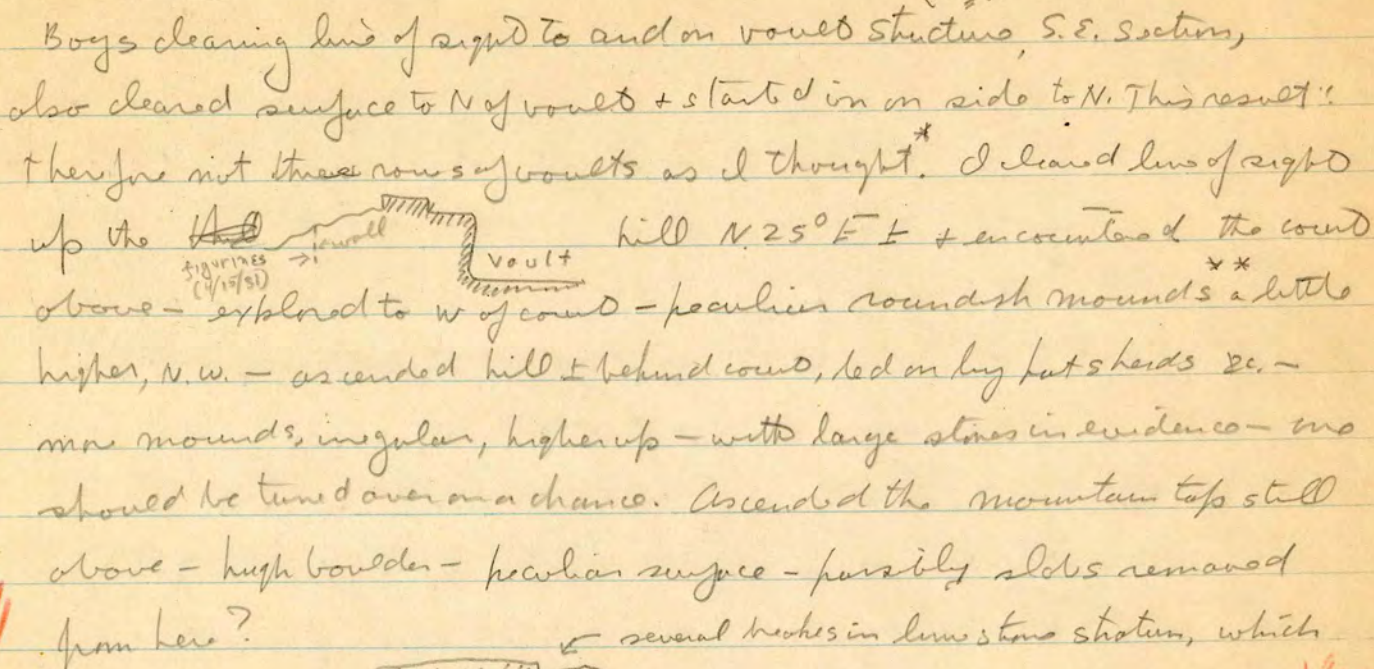 Boys clearing line of sight to and on vault structure, S.E. Section,
also cleared surface to N of vault + started in on side to N. This result:
therefore not three rows of vaults as I thought.* I cleared line of sight
up the hill N.25°E ± + encountered the court
figurines → wall
(4/15/31)
vault
above – explored to W of court – peculiar roundish mounds ** a little
higher, N.W. – ascended hill ± behind court, led on by potsherds &c. –
more mounds, irregular, higher up – with large stones in evidence – one
should be turned over on a chance. Ascended the mountain top still
above – hugh boulder – peculiar surface – possibly slabs removed
from here?
← several breakes in limestone stratum, which